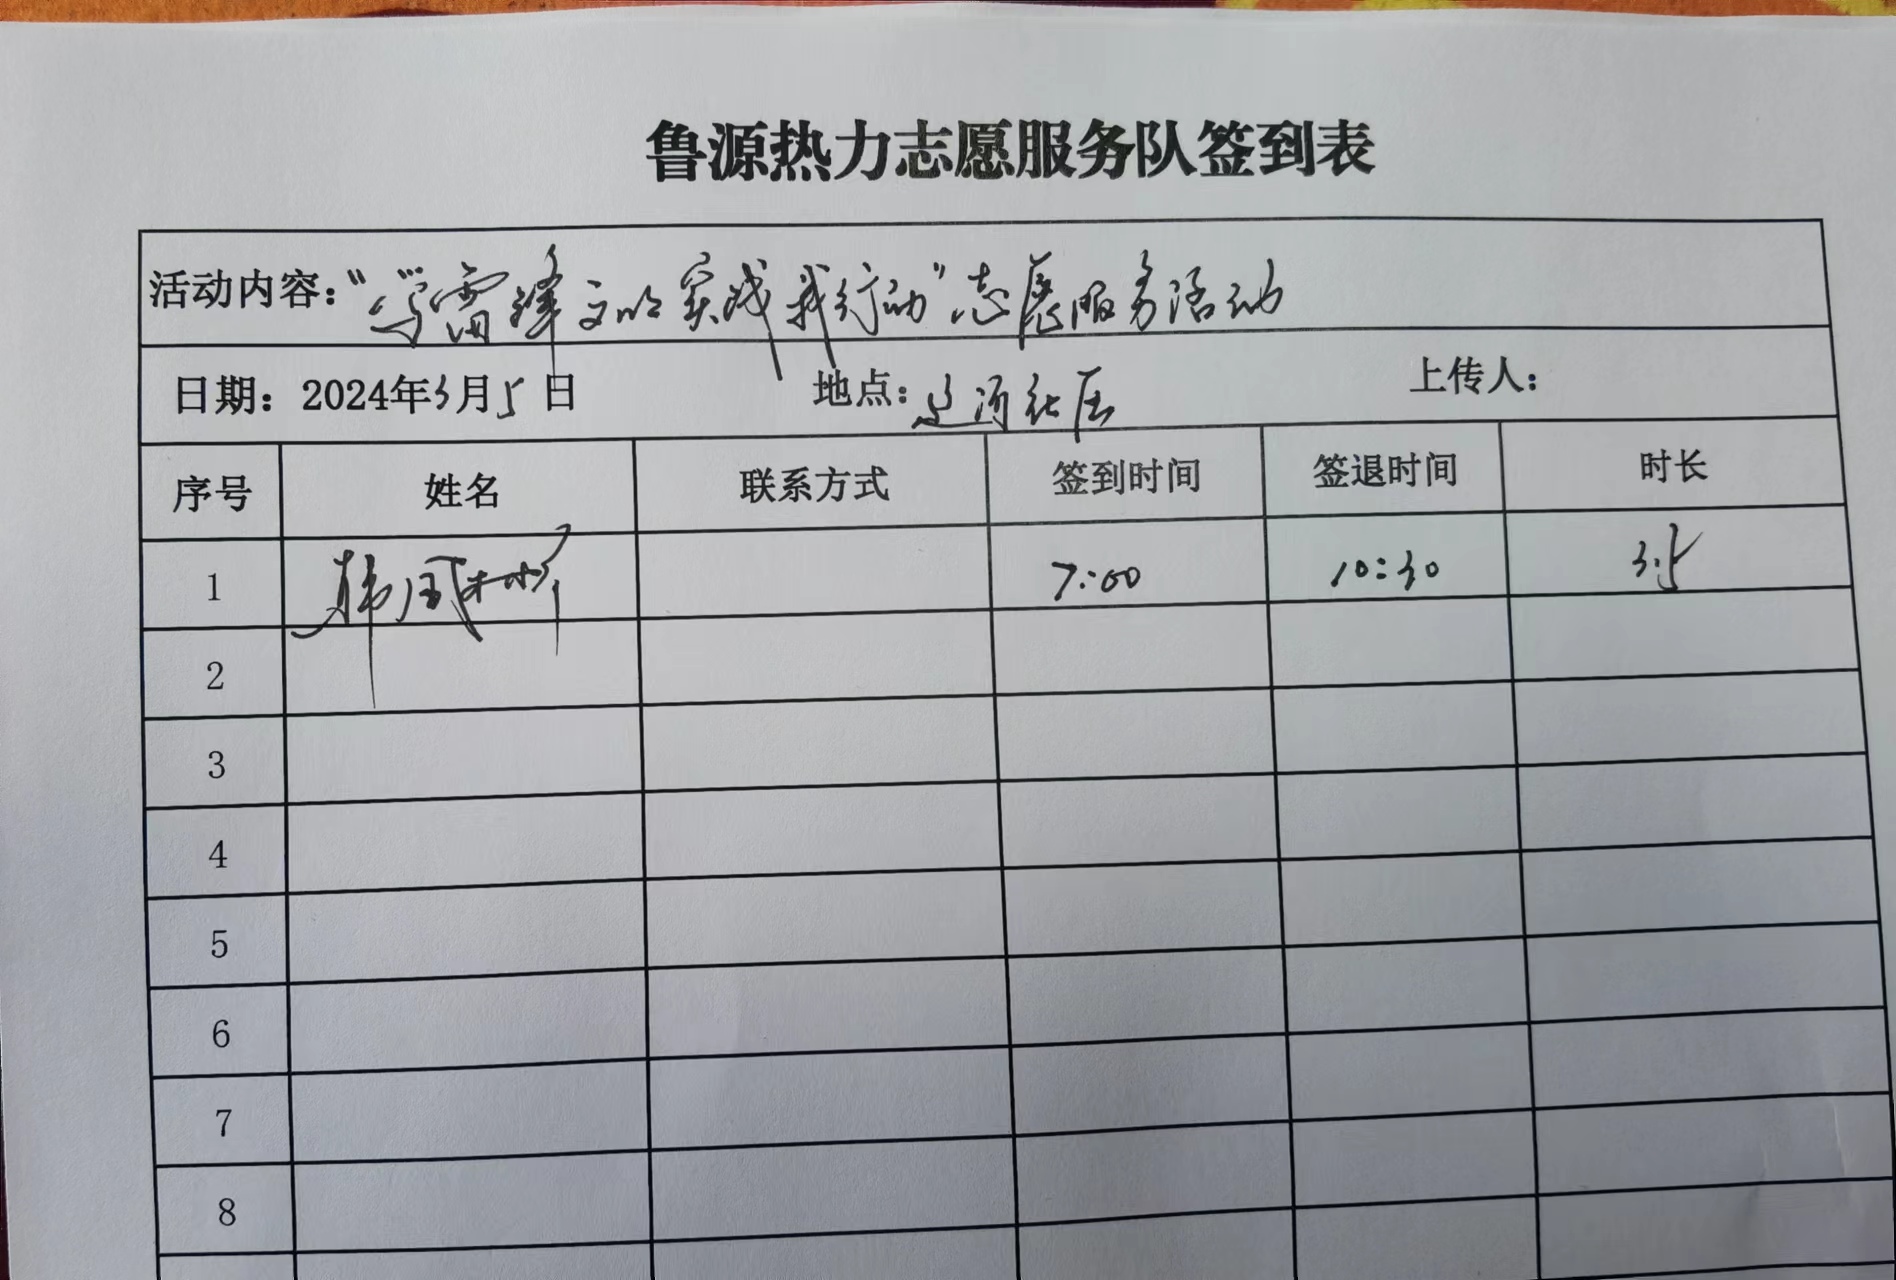 鲁源热力志愿服务队签到表
活动内容：“学雷锋文明实践我行动”志愿服务活动
日期：2024年3月5日 地点：社区 上传人：
序号 姓名 联系方式 签到时间 签退时间 时长
1 韩 7:00 10:30 3.5
2
3
4
5
6
7
8